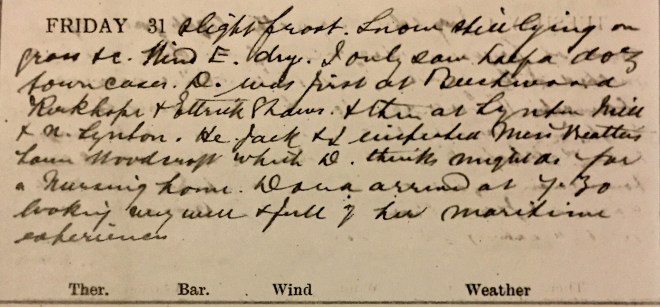 FRIDAY 31 Slight frost. Snow still lying on
grass &c. Wind E. dry. I only saw half a doz
town cases. D. was first at
Kirkhope & Ettrick Shaws. & then at Lynton Mill
& W. Lynton. He Jack & I inspected Miss
house Woodcroft which D. thinks might do for
a Nursing home. Dona arrived at 7.30
looking very well & full of her maritime
experiences
Ther. Bar. Wind Weather